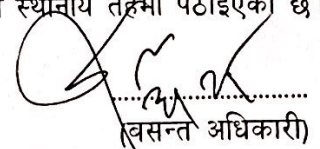 स्थानीय तहमा पठाइएको छ
(बसन्त अधिकारी)